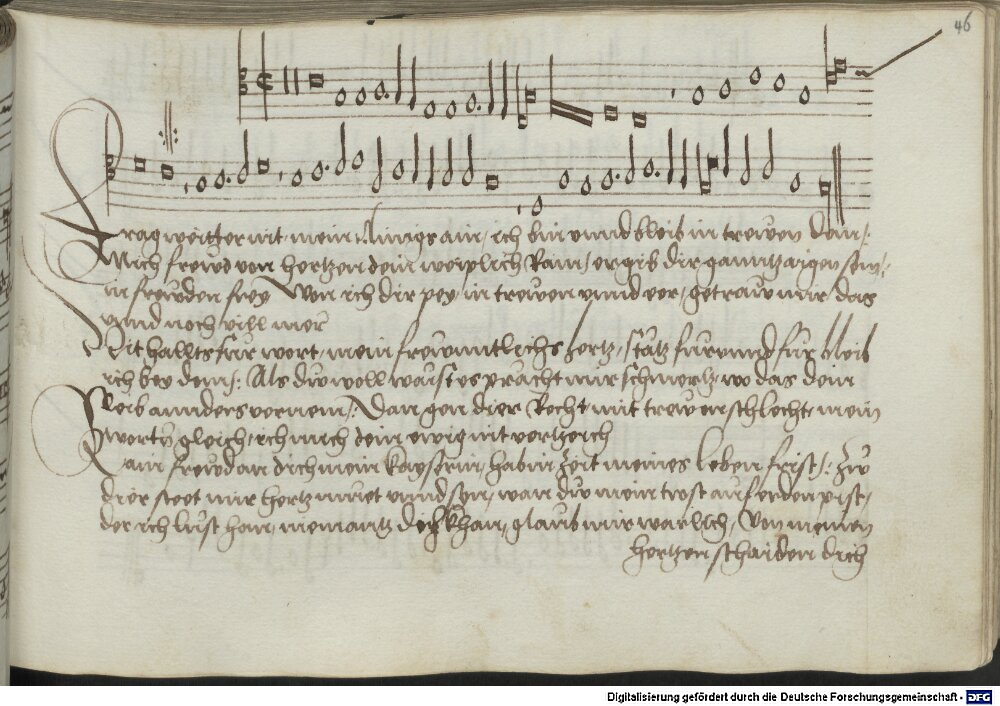 46
Frag weitter nit mein ainige ain / ich bin vnnd bleib in trewen dein /:
Mich frewd von hertzen dein weiplich Rain / ergib dir ganntz aigen sein /:
in frewden frey Won ich dir pey / in trewen vnnd eer / getraw mir das
vnnd noch vill mer
Nit hallts für wort / mein frewntlichs hertz / stätz für vnnd für bleib
ich bey dem /: Als dw woll waist es pracht mir schmertz / wo das dein
leib annders vernem /: Dan gen dier Recht / mit trewen schlecht / mein
wort gleich / ich mich dein ewig nit vertzeich
kain frewd an dich mein kayserin / hab in Zeit meines leben frist /: Zw
dier steet mir hertz muet vnnd syn / wan dw mein trost auf erden pist /
der ich lust han / niemantz dich khan / glaub mir warlich / Von meinen
hertzen schaiden dich
Digitalisierung gefördert durch die Deutsche Forschungsgemeinschaft - DFG